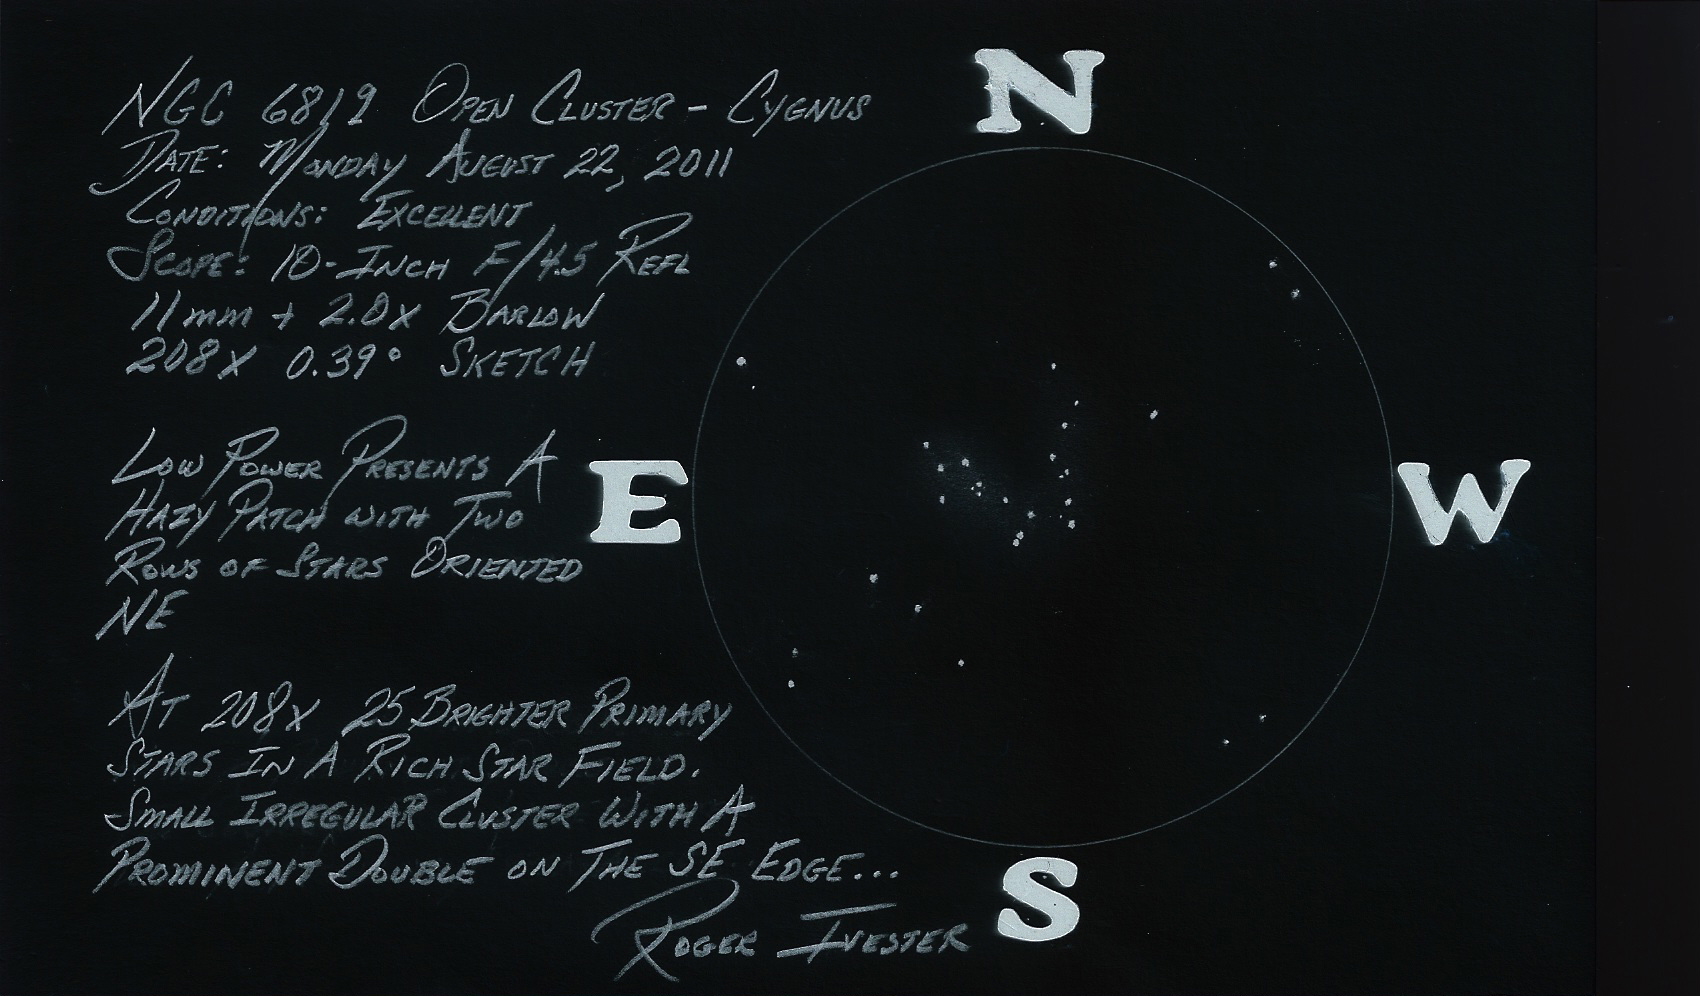 NGC 6819 OPEN CLUSTER - CYGNUS
DATE: MONDAY AUGUST 22, 2011
CONDITIONS: EXCELLENT
SCOPE: 10-INCH F/4.5 REFL
11mm + 2.0X BARLOW
208X 0.39° SKETCH
LOW POWER PRESENTS A
HAZY PATCH WITH TWO
ROWS OF STARS ORIENTED
NE
AT 208X 25 BRIGHTER PRIMARY
STARS IN A RICH STAR FIELD.
SMALL IRREGULAR CLUSTER WITH A
PROMINENT DOUBLE ON THE SE EDGE...
ROGER IVESTER
N
E
W
S